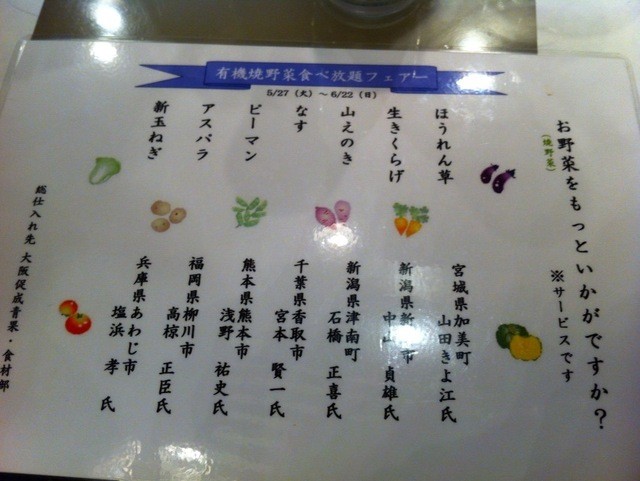 有機焼野菜食べ放題フェアー
5/27（火）～6/22（日）
お野菜をもっといかがですか？
（焼野菜）
※サービスです
ほうれん草
宮城県加美町
山田きよ江氏
生きくらげ
新潟県新 市
中山 貞雄氏
山えのき
新潟県津南町
石橋 正喜氏
なす
千葉県香取市
宮本 賢一氏
ピーマン
熊本県熊本市
浅野 祐史氏
アスパラ
福岡県柳川市
高椋 正臣氏
新玉ねぎ
兵庫県あわじ市
塩浜 孝 氏
総仕入れ先 大阪促成青果・食材部